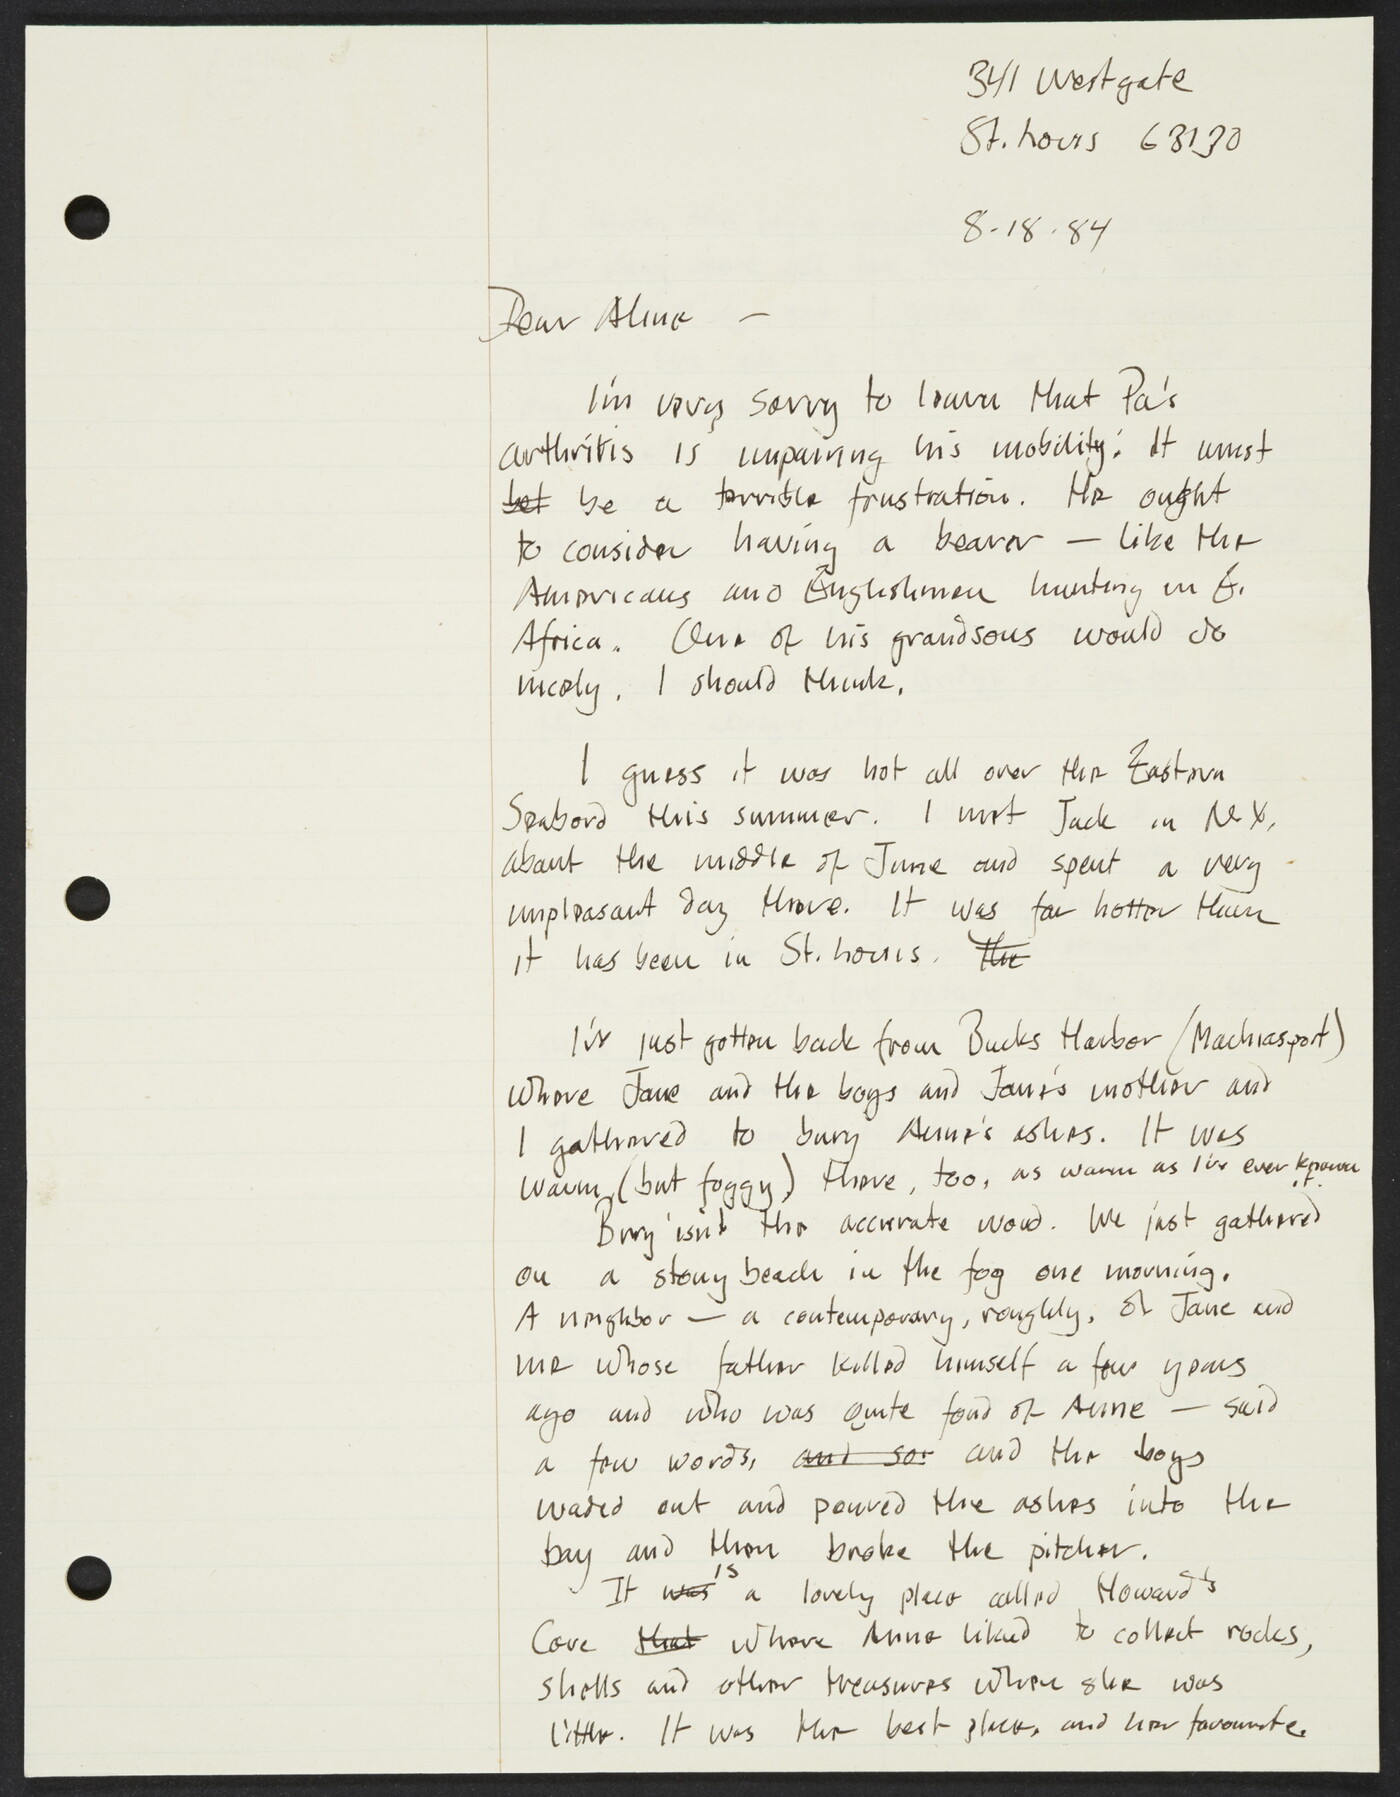 341 Westgate
St. Louis 63130
8-18-84
Dear Aline —
I'm very sorry to learn that Pa's
arthritis is impairing his mobility: It must
bet be a terrible frustration. He ought
to consider having a bearer — like the
Americans and Englishmen hunting in E.
Africa. One of his grandsons would do
nicely, I should think.
I guess it was hot all over the Eastern
Seabord this summer. I met Jack in N.Y.
about the middle of June and spent a very
unpleasant day there. It was far hotter than
it has been in St. Louis. The
I've just gotten back from Bucks Harbor (Machiasport)
where Jane and the boys and Jane's mother and
I gathered to bury Anne's ashes. It was
warm (but foggy) there, too, as warm as I've ever known it.
Bury isn't the accurate word. We just gathered
on a stony beach in the fog one morning.
A neighbor — a contemporary, roughly, of Jane and
me whose father killed himself a few years
ago and who was quite fond of Anne — said
a few words, and so and the boys
waded out and poured the ashes into the
bay and then broke the pitcher.
It was is a lovely place called Howard's
Cove that where Anne liked to collect rocks,
shells and other treasures when she was
little. It was the best place, and her favourite.